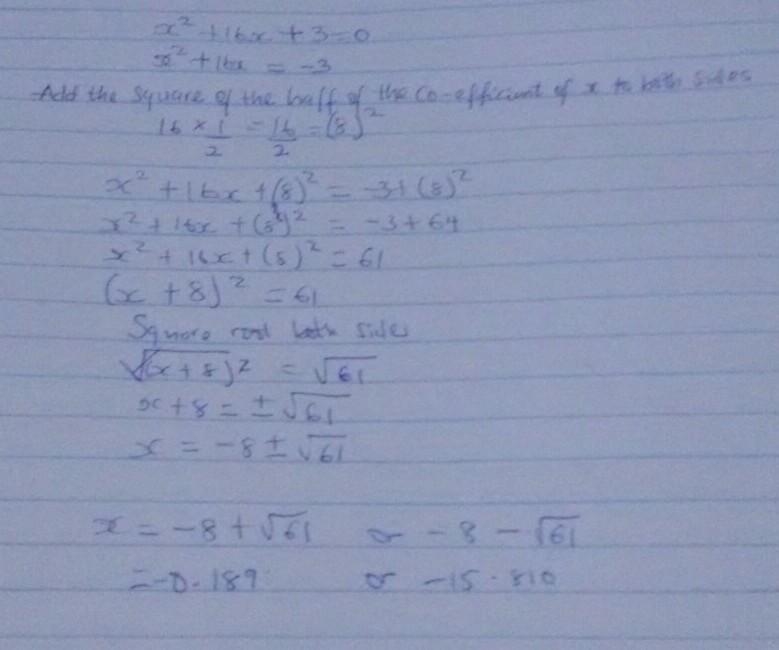 x² + 16x + 3 = 0
x² + 16x = -3
Add the square of the half of the co-efficient of x to both sides
16 × 1/2 = 16/2 = (8)²
x² + 16x + (8)² = -3 + (8)²
x² + 16x + (8)² = -3 + 64
x² + 16x + (8)² = 61
(x + 8)² = 61
Square root both sides
√(x + 8)² = √61
x + 8 = ± √61
x = -8 ± √61
x = -8 + √61 or -8 - √61
= -0.189 or -15.810